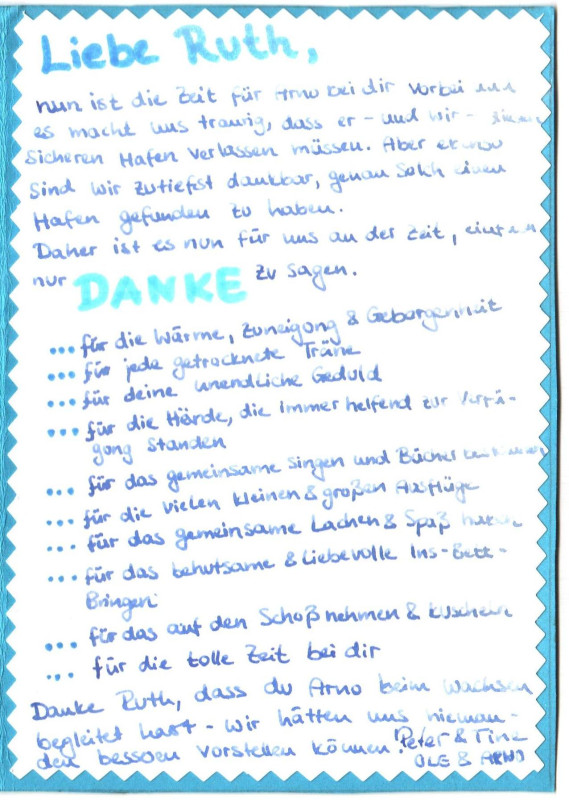 Liebe Ruth,
nun ist die Zeit für Arno bei dir vorbei und
es macht uns traurig, dass er - und wir - diesen
Sicheren Hafen verlassen müssen. Aber
sind wir zutiefst dankbar, genau solch einen
Hafen gefunden zu haben.
Daher ist es nun für uns an der Zeit, einfach
nur DANKE zu sagen.
... für die Wärme, Zuneigung & Geborgenheit
... für jede getrocknete Träne
... für deine unendliche Geduld
... für die Hände, die immer helfend zur Verfü-
gung standen
... für das gemeinsame Singen und Bücher
... für die vielen kleinen & großen Ausflüge
... für das gemeinsame Lachen & Spaß haben
... für das behutsame & liebevolle Ins-Bett-
Bringen
... für das auf den Schoß nehmen & kuscheln
... für die tolle Zeit bei dir
Danke Ruth, dass du Arno beim Wachsen
begleitet hast - wir hätten uns nieman-
den besseren vorstellen können! Peter & Tine
OLE & ARNO